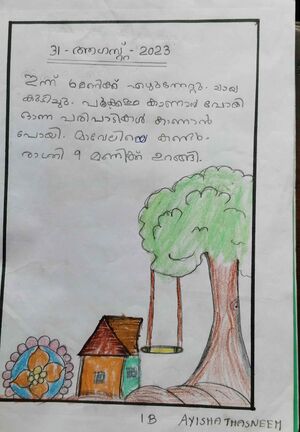 31 - ആഗസ്റ്റ് - 2023
ഇന്ന് 8മണിക്ക് എഴുന്നേറ്റു. ചായ
കുടിച്ചു. പൂക്കളം കാണാൻ പോയി
ഓണ പരിപാടികൾ കാണാൻ
പോയി. മാവേലിയെ കണ്ടു.
രാത്രി 9 മണിക്ക് ഉറങ്ങി.
1 B AYISHA THASNEEM